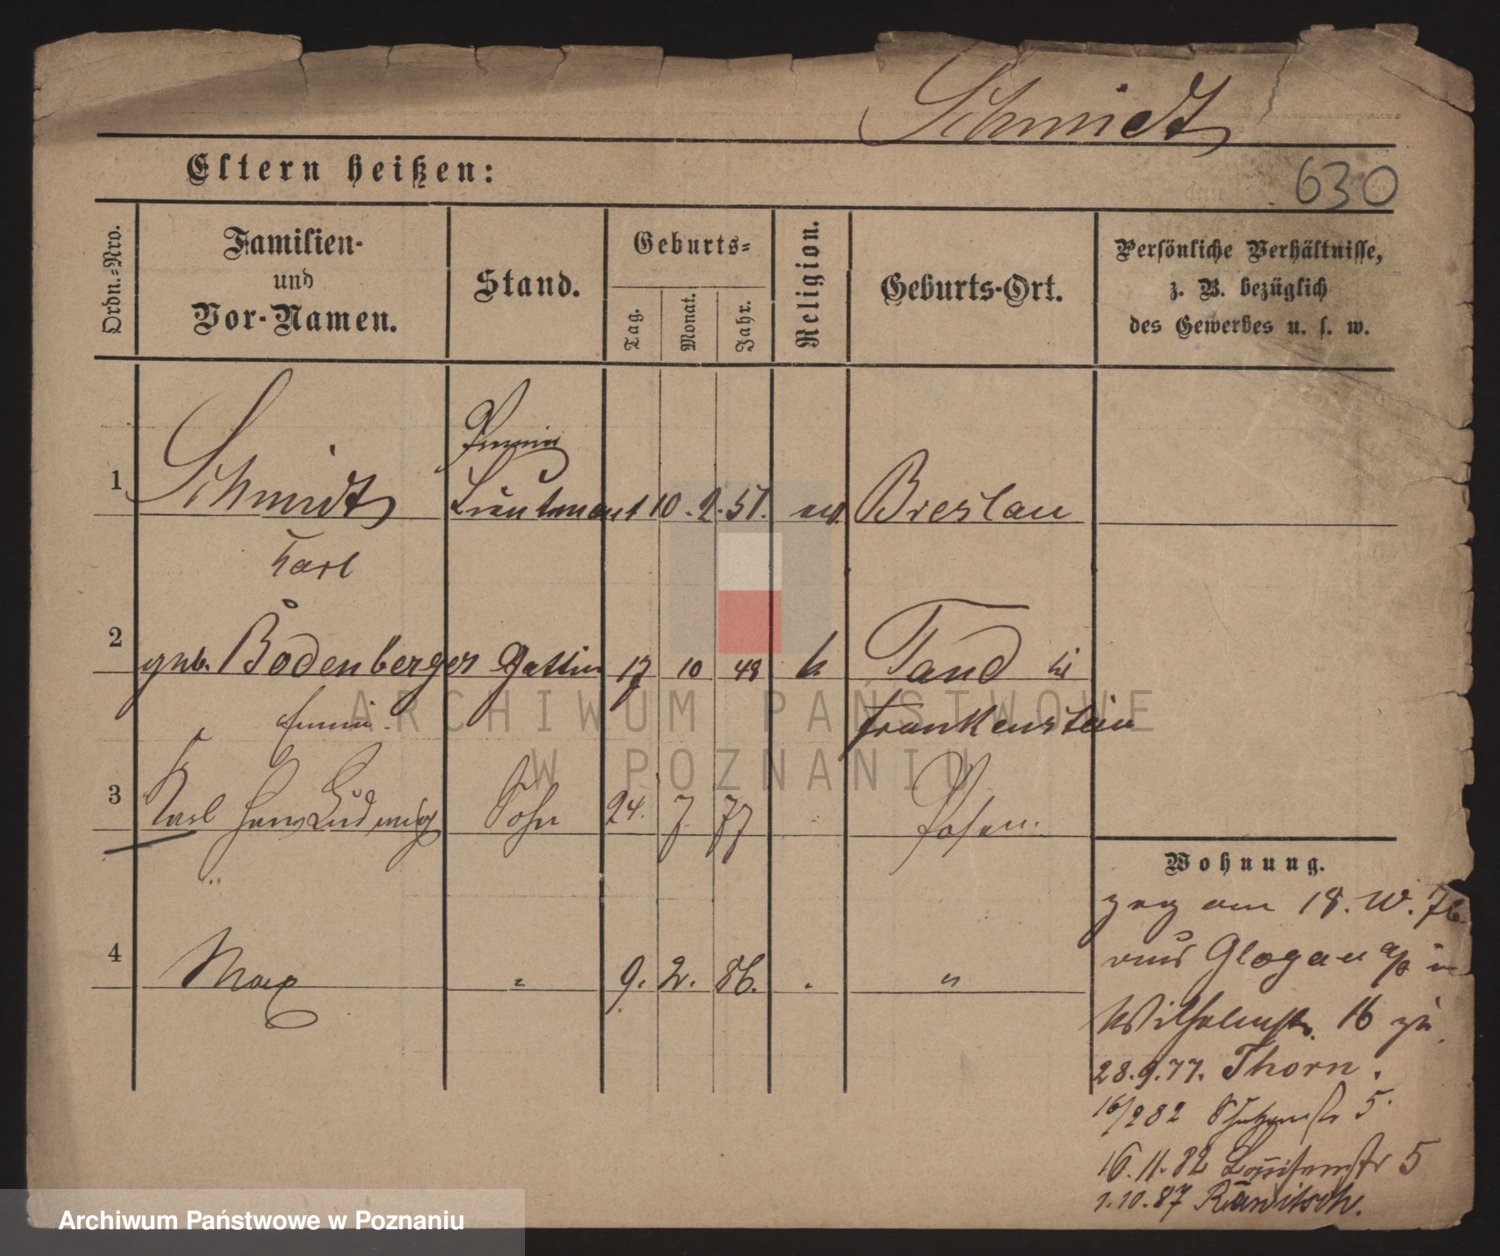 Schmidt
Eltern heißen:
630
Ordn.-Nro.
Familien-
und
Vor-Namen.
Stand.
Geburts-
Tag.
Monat.
Jahr.
Religion.
Geburts-Ort.
Persönliche Verhältnisse,
z. B. bezüglich
des Gewerbes u. s. w.
Premier
1 Schmidt Lieutenant 10. 2. 51. ev. Breslau
Karl
2 geb. Bodenberger Gattin 17 10 48 k. Tand bei
Emmi Frankenstein
3 Karl Hans Ludwig Sohn 24. 7 77 Posen.
4 Max " 9. 2. 86. "
Wohnung.
zog am 18. 76.
aus Glogau a/O in
Wilhelmstr. 16 zu
28.9.77. Thorn.
16/2 82 Schützenstr 5.
16.11.82 Louisenstr 5
1.10.87 Rawitsch.
ARCHIWUM PAŃSTWOWE
W POZNANIU
Archiwum Państwowe w Poznaniu